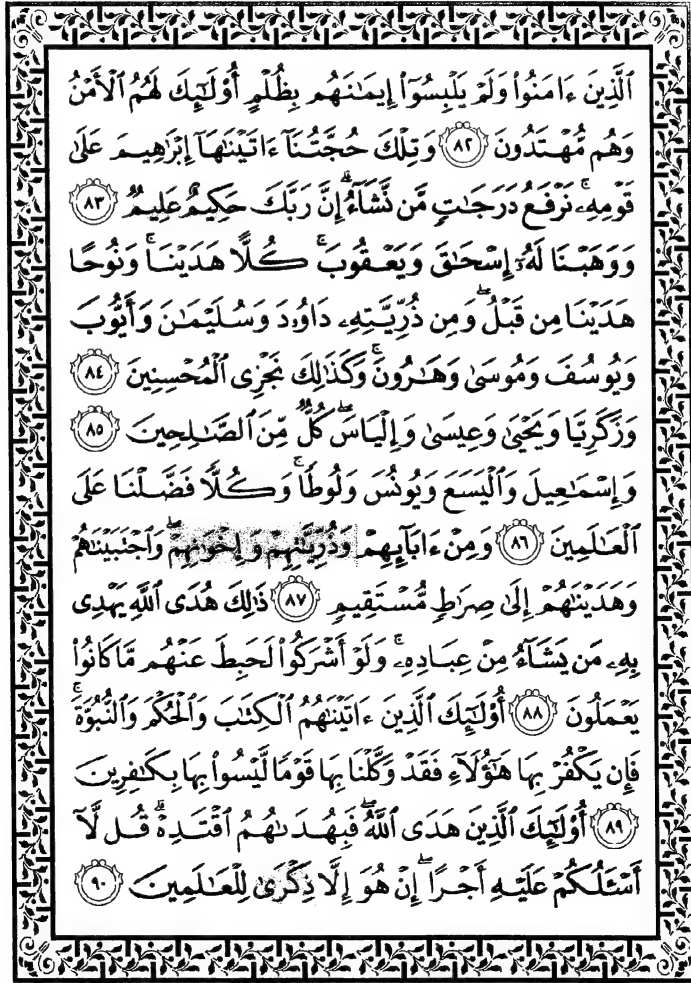 ٱلَّذِينَ ءَامَنُوا۟ وَلَمْ يَلْبِسُوٓا۟ إِيمَٰنَهُم بِظُلْمٍ أُو۟لَٰٓئِكَ لَهُمُ ٱلْأَمْنُ
وَهُم مُّهْتَدُونَ ٨٢ وَتِلْكَ حُجَّتُنَآ ءَاتَيْنَٰهَآ إِبْرَٰهِيمَ عَلَىٰ
قَوْمِهِۦ ۚ نَرْفَعُ دَرَجَٰتٍ مَّن نَّشَآءُ ۗ إِنَّ رَبَّكَ حَكِيمٌ عَلِيمٌ ٨٣
وَوَهَبْنَا لَهُۥٓ إِسْحَٰقَ وَيَعْقُوبَ ۚ كُلًّا هَدَيْنَا ۚ وَنُوحًا
هَدَيْنَا مِن قَبْلُ ۖ وَمِن ذُرِّيَّتِهِۦ دَاوُۥدَ وَسُلَيْمَٰنَ وَأَيُّوبَ
وَيُوسُفَ وَمُوسَىٰ وَهَٰرُونَ ۚ وَكَذَٰلِكَ نَجْزِى ٱلْمُحْسِنِينَ ٨٤
وَزَكَرِيَّا وَيَحْيَىٰ وَعِيسَىٰ وَإِلْيَاسَ ۖ كُلٌّ مِّنَ ٱلصَّٰلِحِينَ ٨٥
وَإِسْمَٰعِيلَ وَٱلْيَسَعَ وَيُونُسَ وَلُوطًا ۚ وَكُلًّا فَضَّلْنَا عَلَى
ٱلْعَٰلَمِينَ ٨٦ وَمِنْ ءَابَآئِهِمْ وَذُرِّيَّٰتِهِمْ وَإِخْوَٰنِهِمْ ۖ وَٱجْتَبَيْنَٰهُمْ
وَهَدَيْنَٰهُمْ إِلَىٰ صِرَٰطٍ مُّسْتَقِيمٍ ٨٧ ذَٰلِكَ هُدَى ٱللَّهِ يَهْدِى
بِهِۦ مَن يَشَآءُ مِنْ عِبَادِهِۦ ۚ وَلَوْ أَشْرَكُوا۟ لَحَبِطَ عَنْهُم مَّا كَانُوا۟
يَعْمَلُونَ ٨٨ أُو۟لَٰٓئِكَ ٱلَّذِينَ ءَاتَيْنَٰهُمُ ٱلْكِتَٰبَ وَٱلْحُكْمَ وَٱلنُّبُوَّةَ ۚ
فَإِن يَكْفُرْ بِهَا هَٰٓؤُلَآءِ فَقَدْ وَكَّلْنَا بِهَا قَوْمًا لَّيْسُوا۟ بِهَا بِكَٰفِرِينَ
٨٩ أُو۟لَٰٓئِكَ ٱلَّذِينَ هَدَى ٱللَّهُ ۖ فَبِهُدَىٰهُمُ ٱقْتَدِهْ ۗ قُل لَّآ
أَسْـَٔلُكُمْ عَلَيْهِ أَجْرًا ۖ إِنْ هُوَ إِلَّا ذِكْرَىٰ لِلْعَٰلَمِينَ ٩٠